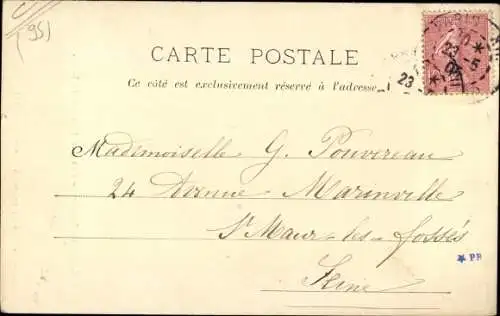 (95)
CARTE POSTALE
Ce côté est exclusivement réservé à l'adresse
Mademoiselle G. Pouvereau
24 Avenue Maranville
St Maur-les-fossés
Seine
PARIS
23 - 5
23
★ PR